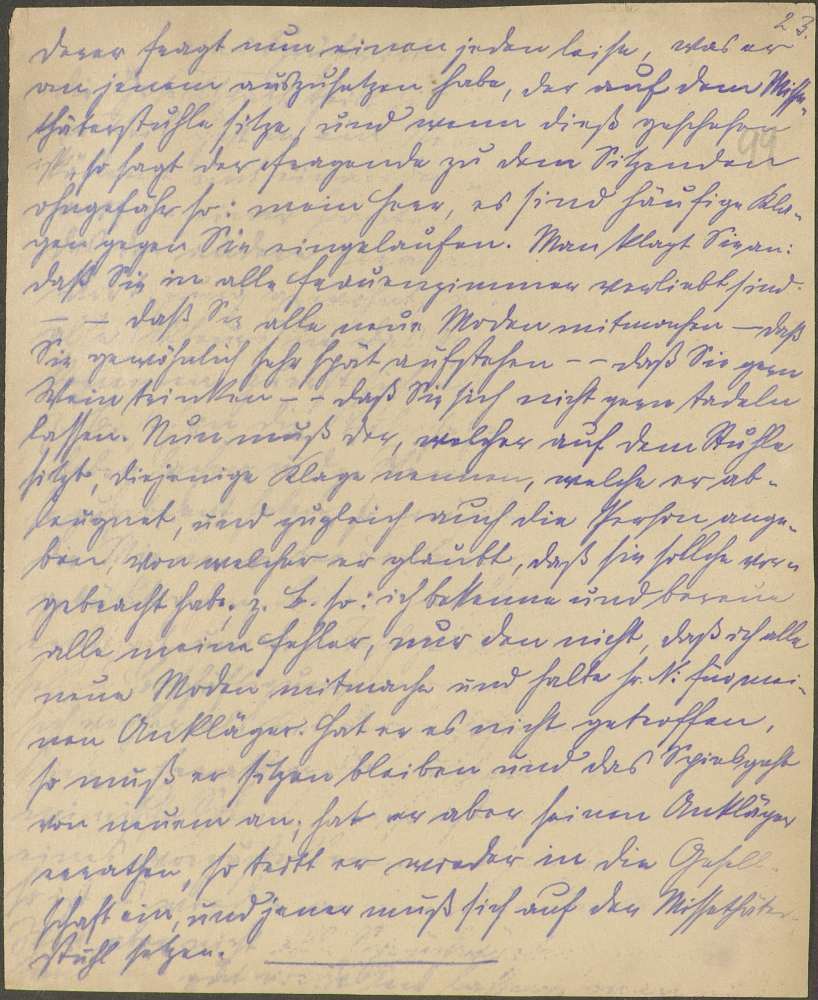 23.
derer fragt nun einen jeden leise, was er
an jenem auszusetzen habe, der auf dem Misse-
thäterstuhle sitze, und wenn dieß geschehen
99
so sagt der Fragende zu dem Sitzenden
ohngefähr so: mein Herr, es sind häufige Kla-
gen gegen Sie eingelaufen. Man klagt Sie an:
daß Sie in alle Frauenzimmer verliebt sind.
— — daß Sie alle neue Moden mitmachen — daß
Sie gewöhnlich sehr spät aufstehen — — daß Sie gern
Wein trinken — — daß Sie sich nicht gern tadeln
lassen. Nun muß der, welcher auf dem Stuhle
sitzt, diejenige Klage nennen, welche er ab-
leugnet, und zugleich auch die Person ange-
ben, von welcher er glaubt, daß sie solche vor-
gebracht habe, z. B. so: ich bekenne und bereue
alle meine Fehler, nur den nicht, daß ich alle
neue Moden mitmache und halte Hr. N: für mei-
nen Ankläger. Hat er es nicht getroffen,
so muß er sitzen bleiben und das Spiel geht
von neuem an; hat er aber seinen Ankläger
errathen, so tritt er wieder in die Gesell-
schaft ein, und jener muß sich auf den Missethäter-
stuhl setzen.